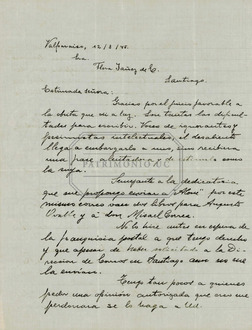 Valparaíso, 12/8/45.
Sra.
Flora Yáñez de E.
Santiago.
Estimada señora:
Gracias por el juicio favorable a
la obrita que vi a luz. Son tantas las dificul-
tades para escribir. Vivo de ignorantes y
presumistas intelectuales, el desaliento
llega a embargarlo a uno, sin recibir a
una frase alentadora de estímulo como
la suya.
PATRIMONIO.CL
Semejante a la dedicatoria
que me propongo enviar a "Alone" por este
mismo correo van dos libros para Augusto
Ovalle y a don Misael Correa.
No lo hice antes en espera de
la franquicia postal a que tengo derecho
y que a pesar de haber solicitado a la Di-
rección de Correos en Santiago aun no me
la envían.
Tengo tan pocos a quienes
pedir una opinión autorizada que creo me
perdonará se lo haga a Ud.